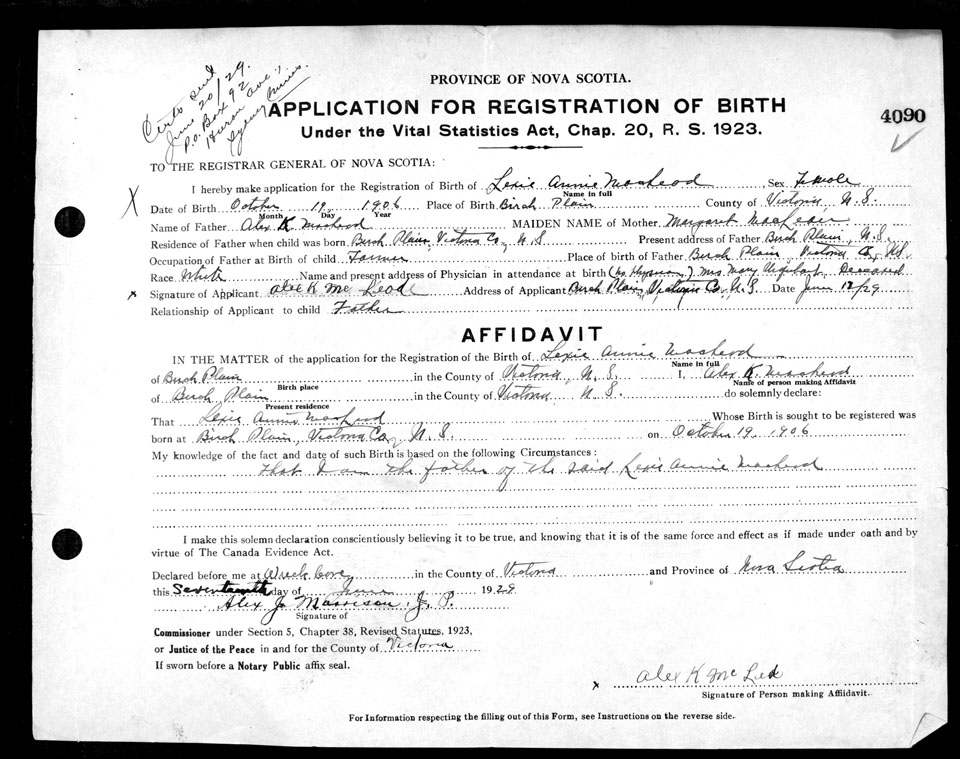 Certo sent
June 20/29.
P.O. Box 92
Huron Ave.,
Sydney Mines.
PROVINCE OF NOVA SCOTIA.
APPLICATION FOR REGISTRATION OF BIRTH
4090
Under the Vital Statistics Act, Chap. 20, R. S. 1923.
TO THE REGISTRAR GENERAL OF NOVA SCOTIA:
X I hereby make application for the Registration of Birth of Lexie Annie MacLeod Sex Female
Name in full
Date of Birth October 19 1906 Place of Birth Birch Plain County of Victoria N.S.
Month Day Year
Name of Father Alex K MacLeod MAIDEN NAME of Mother Margaret MacLean
Residence of Father when child was born Birch Plain, Victoria Co, N S Present address of Father Birch Plain, N.S.
Occupation of Father at Birth of child Farmer Place of birth of Father Birch Plain, Victoria Co, N.S.
Race White Name and present address of Physician in attendance at birth (no Physician) Mrs Mary Urquhart, Deceased
x Signature of Applicant Alex K Mc Leod Address of Applicant Birch Plain, Victoria Co., N.S Date June 17/29
Relationship of Applicant to child Father
AFFIDAVIT
IN THE MATTER of the application for the Registration of the Birth of Lexie Annie MacLeod
Name in full
of Birch Plain in the County of Victoria, N. S. I, Alex K MacLeod
Birth place Name of person making Affidavit
of Birch Plain in the County of Victoria N. S. do solemnly declare:
Present residence
That Lexie Annie MacLeod Whose Birth is sought to be registered was
born at Birch Plain, Victoria Co, N. S. on October 19, 1906
My knowledge of the fact and date of such Birth is based on the following Circumstances:
That I am the father of the said Lexie Annie MacLeod
I make this solemn declaration conscientiously believing it to be true, and knowing that it is of the same force and effect as if made under oath and by
virtue of The Canada Evidence Act.
Declared before me at Wreck Cove in the County of Victoria and Province of Nova Scotia
this Seventeenth day of June 1929
Alex J. Morrison, J. P.
Signature of
Commissioner under Section 5, Chapter 38, Revised Statutes, 1923,
or Justice of the Peace in and for the County of Victoria
If sworn before a Notary Public affix seal.
x Alex K Mc Leod
Signature of Person making Affiidavit.
For Information respecting the filling out of this Form, see Instructions on the reverse side.